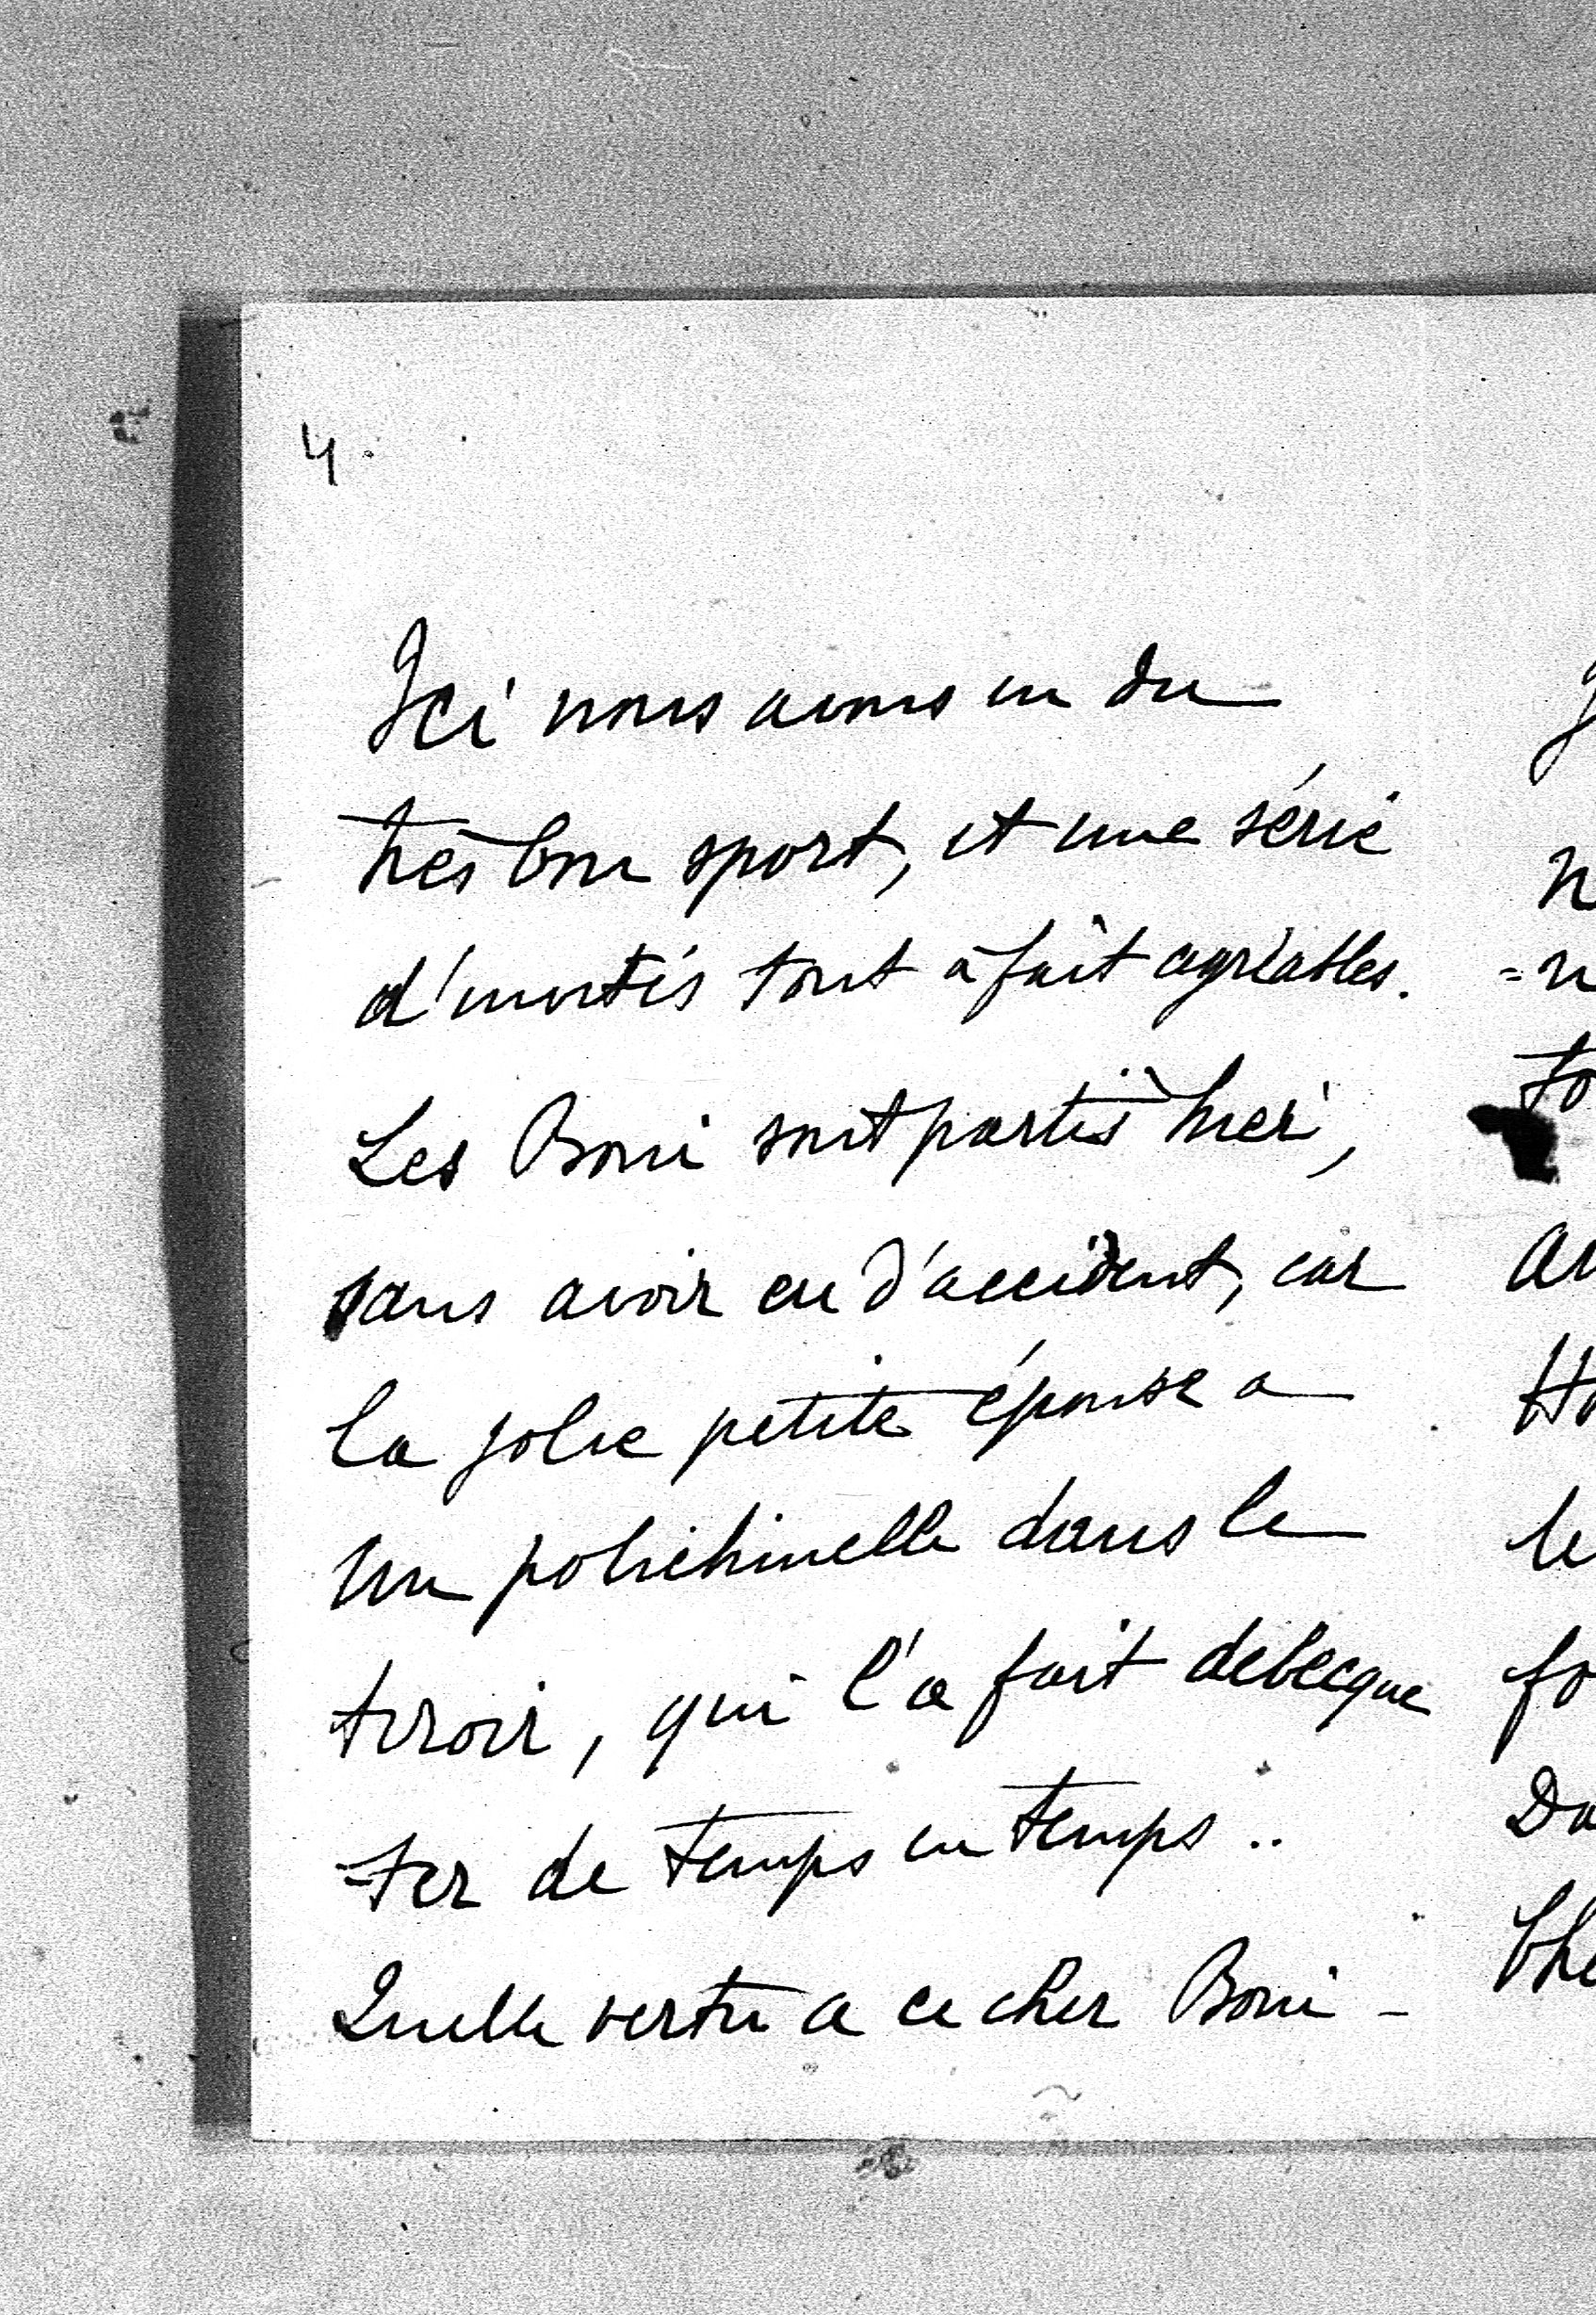 4.
Ici nous avons eu du
très bon sport, et une série
d'invités tout à fait agréables.
Les Boni sont partis hier,
sans avoir eu d'accident, car
la jolie petite épouse a
un polichinelle dans le
tiroir, qui l'a fait debecque
=ter de temps en temps ..
Quelle vertu a ce cher Boni -